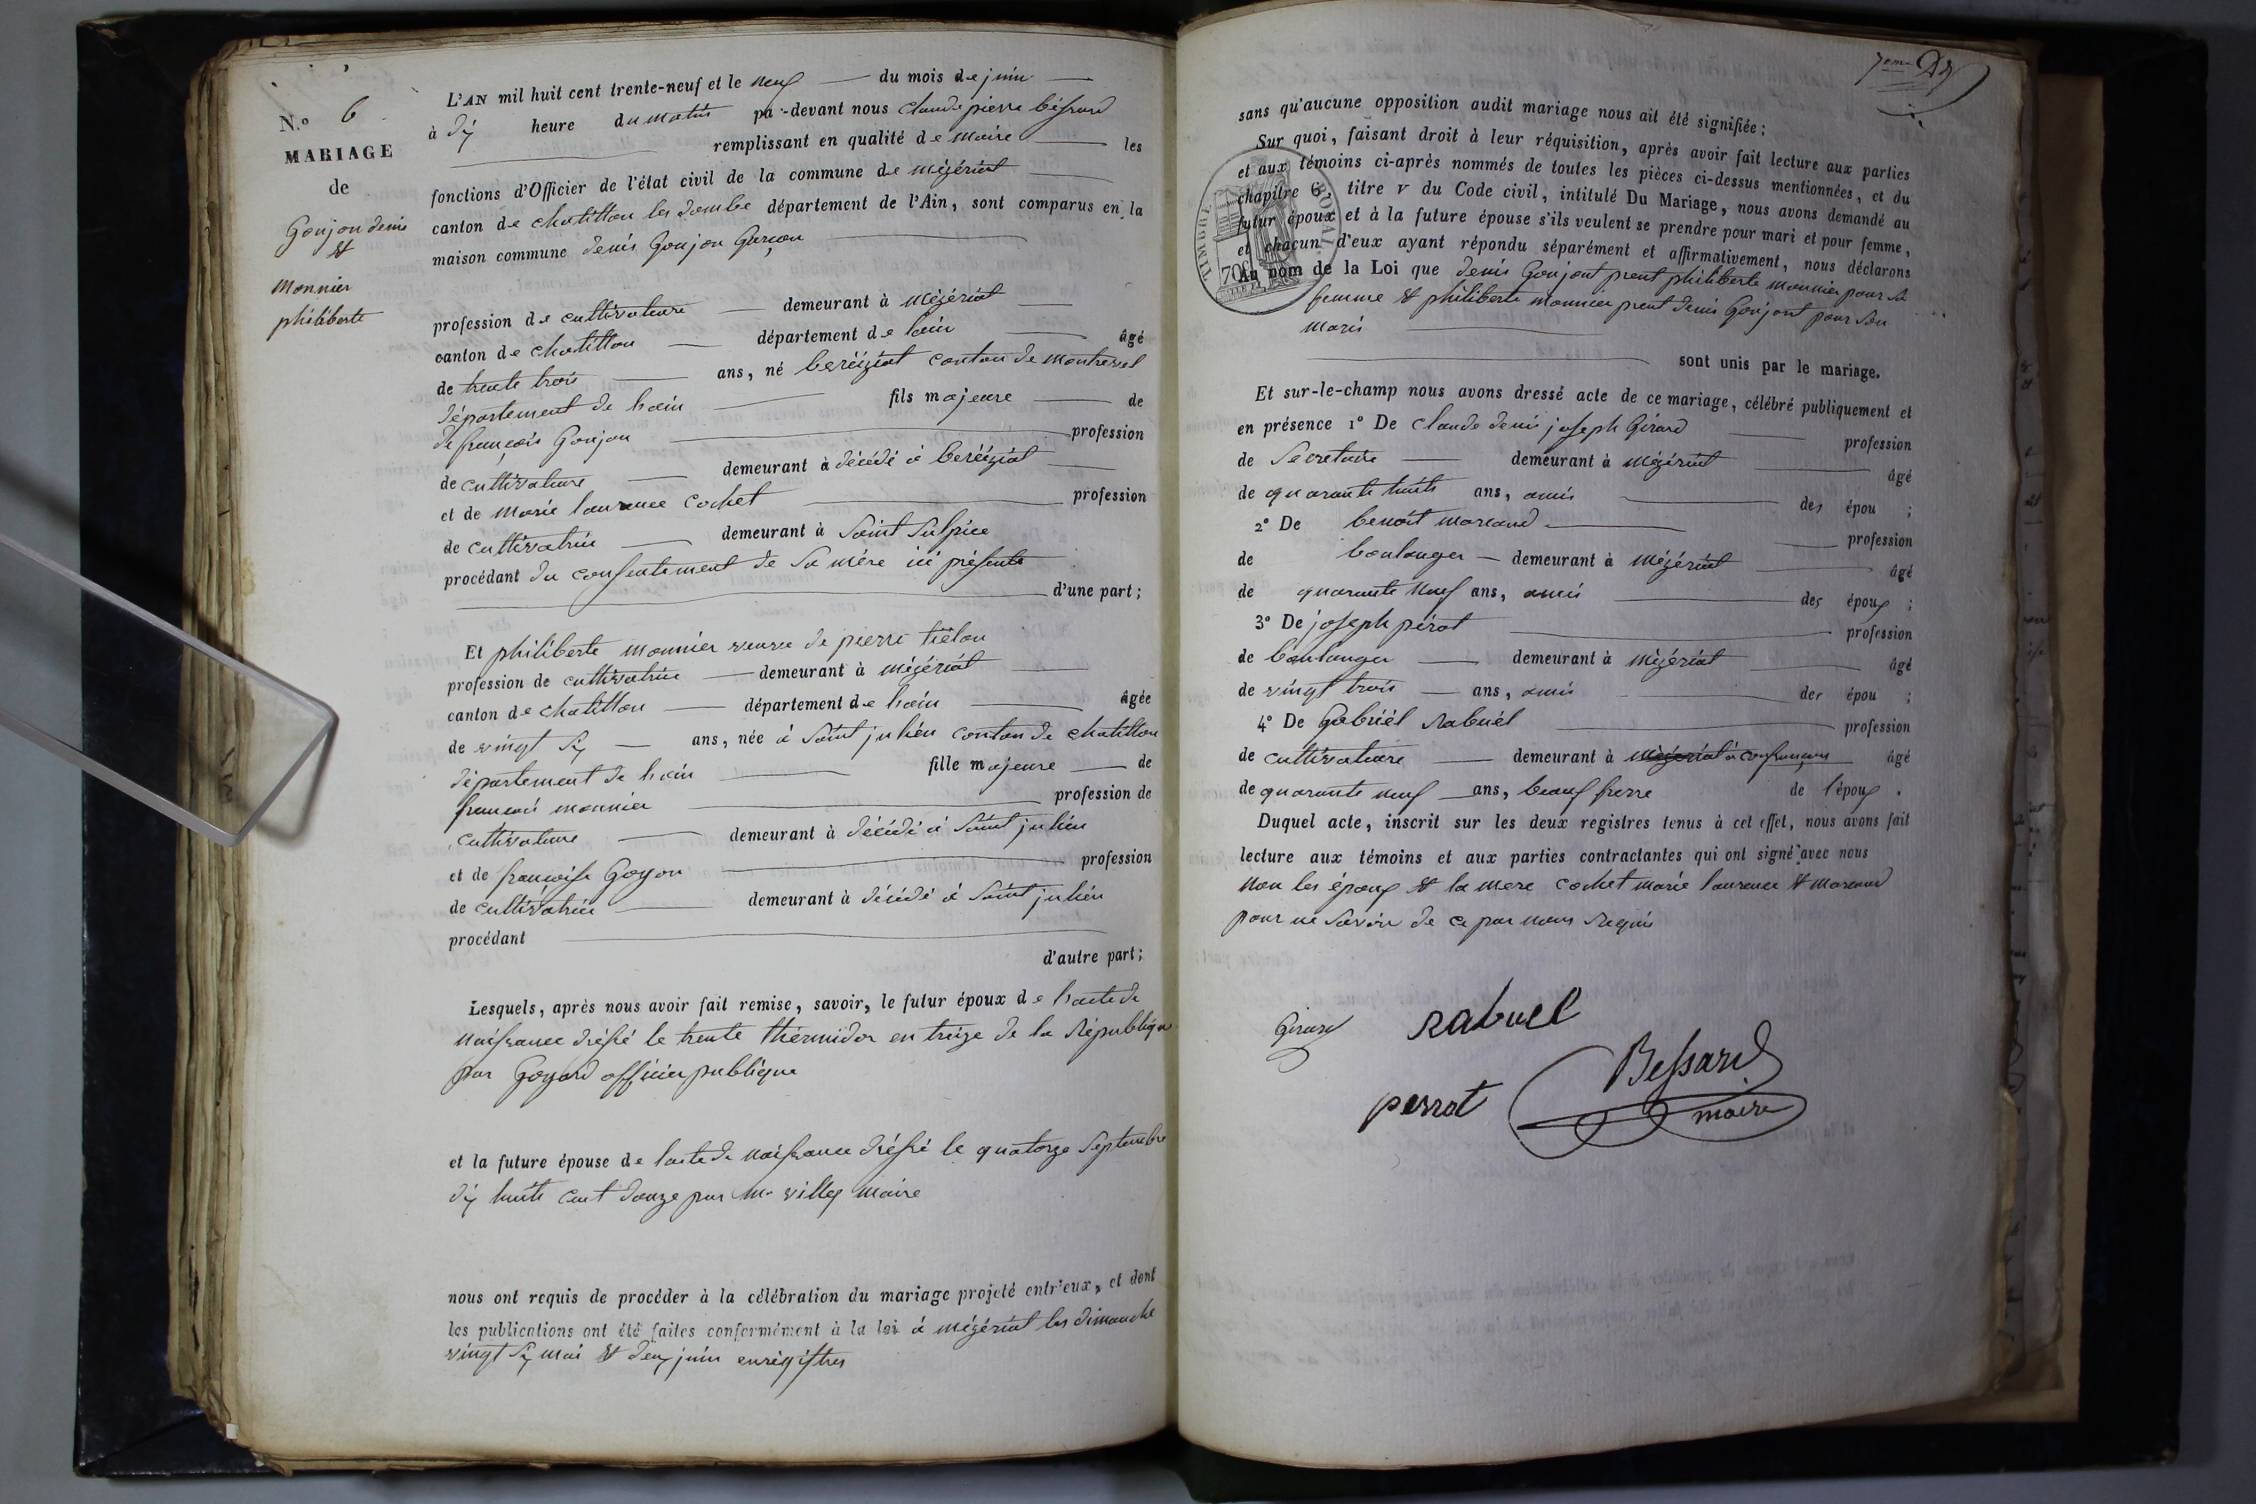 N.º 6
MARIAGE
de
Goujon denis
et
Monnier
philiberte
L'AN mil huit cent trente-neuf et le neuf du mois de juin
à dix heure du matin par-devant nous Claude pierre béssard
remplissant en qualité de maire les
fonctions d'Officier de l'état civil de la commune de mézériat
canton de chatillon les dombe département de l'Ain, sont comparus en la
maison commune denis Goujon Garçon
profession de cultivateure demeurant à mézériat
canton de chatillon département de lain âgé
de trente trois ans, né beréiziat canton de montrevel
département de lain fils majeure de
de françois Goujon profession
de cultivateure demeurant à décédé à beréiziat
et de marie laurence cochet profession
de cultivatrice demeurant à Saint Sulpice
procédant du consentement de Sa mére ici présente
d'une part;
Et philiberte monnier veuve de pierre tiélon
profession de cultivatrice demeurant à mézériat
canton de chatillon département de lain âgée
de vingt Six ans, née à Saint julién canton de chatillon
département de lain fille majeure de
francois monnier profession de
cultivateure demeurant à décédé à Saint julién
et de francoise Goyon profession
de cultivatrice demeurant à décédé à Saint julién
procédant
d'autre part;
Lesquels, après nous avoir fait remise, savoir, le futur époux de lacte de
naissance dréssé le trente thérmidor en treize de la République
par Goyard officier publique
et la future épouse de lacte de naissance dréssé le quatorze Septembre
dix huit cent douze par Mr villey maire
nous ont requis de procéder à la célébration du mariage projeté entr'eux, et dont
les publications ont été faites conformément à la loi à mézériat les dimanche
vingt Six mai et deux juin enrégistres
7eme
sans qu'aucune opposition audit mariage nous ait été signifiée;
Sur quoi, faisant droit à leur réquisition, après avoir fait lecture aux parties
et aux témoins ci-après nommés de toutes les pièces ci-dessus mentionnées, et du
chapitre 6, titre v du Code civil, intitulé Du Mariage, nous avons demandé au
futur époux et à la future épouse s'ils veulent se prendre pour mari et pour femme,
et chacun d'eux ayant répondu séparément et affirmativement, nous déclarons
Au nom de la Loi que denis Goujont prent philiberte monnier pour Sa
femme et philiberte monnier prent denis Goujont pour Son
maris
sont unis par le mariage.
Et sur-le-champ nous avons dressé acte de ce mariage, célébré publiquement et
en présence 1º De Claude denis joseph Girard profession
de Secretaire demeurant à mézériat âgé
de quarante huit ans, amis des épou ;
2º De benoit marcaud profession
de boulanger demeurant à mézériat âgé
de quarante neuf ans, amis des époux ;
3º De joseph pérot profession
de boulanger demeurant à mézériat âgé
de vingt trois ans, amis des épou ;
4º De Gabriél Rabuél profession
de cultivateure demeurant à mézériat à confrançon âgé
de quarante neuf ans, beauf frerre de l'époux .
Duquel acte, inscrit sur les deux registres tenus à cet effet, nous avons fait
lecture aux témoins et aux parties contractantes qui ont signé avec nous
non les époux et la mere cochet marie laurence et marcaud
pour ne Savoir de ce par nous Requis
Girard Rabuel
Bessard
perrot maire
TIMBRE ROYAL
70c